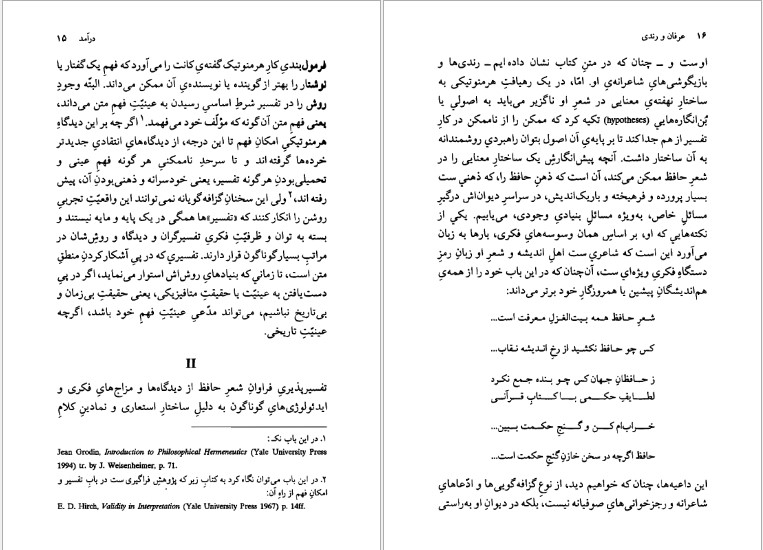 درآمد ۱۵
فرمول‌بندیِ کارِ هرمنوتیک گفته‌یِ کانت را می‌آورد که فهمِ یک گفتار یا
نوشتار را بهتر از گوینده یا نویسنده‌یِ آن ممکن می‌داند. البتّه وجودِ
روش را در تفسیر شرطِ اساسیِ رسیدن به عینیّتِ فهمِ متن می‌داند،
یعنی فهمِ متن آن‌گونه که مؤلّف خود می‌فهمد.۱ اگر چه بر این دیدگاهِ
هرمنوتیکیِ امکانِ فهم تا این درجه، از دیدگاه‌هایِ انتقادیِ جدیدتر
خرده‌ها گرفته‌اند و تا سرحدِ ناممکنیِ هر گونه فهمِ عینی و
تحمیلی‌بودنِ هر گونه تفسیر، یعنی خودسرانه و ذهنی‌بودنِ آن، پیش
رفته‌اند،۲ ولی این سخنانِ گزافه‌گویانه نمی‌توانند این واقعیّتِ تجربیِ
روشن را انکار کنند که «تفسیر»ها همگی در یک پایه و مایه نیستند و
بسته به توان و ظرفیّتِ فکریِ تفسیرگران و دیدگاه و روشِ‌شان در
مراتبِ بسیار گوناگون قرار دارند. تفسیری که در پیِ آشکارکردنِ منطقِ
متن است، تا زمانی که بنیادهایِ روش‌اش استوار می‌نماید، اگر در پیِ
دست‌یافتن به عینیّت یا حقیقتِ متافیزیکی، یعنی حقیقتِ بی‌زمان و
بی‌تاریخ نباشیم، می‌تواند مدّعیِ عینیّتِ فهمِ خود باشد، اگرچه
عینیّتِ تاریخی.
II
تفسیرپذیریِ فراوانِ شعرِ حافظ از دیدگاه‌ها و مزاج‌هایِ فکری و
ایدئولوژی‌هایِ گوناگون به دلیلِ ساختارِ استعاری و نمادینِ کلامِ
۱. در این باب نک:
Jean Grodin, Introduction to Philosophical Hermeneutics (Yale University Press
1994) tr. by J. Weisenheimer, p. 71.
۲. در این باب می‌توان نگاه کرد به کتابِ زیر که پژوهشِ فراگیری ست در بابِ تفسیر و
امکانِ فهم از راهِ آن:
E. D. Hirch, Validity in Interpretation (Yale University Press 1967) p. 14ff.
۱۶ عرفان و رندی
او ست و ــ چنان که در متنِ کتاب نشان داده‌ایم ــ رندی‌ها و
بازیگوشی‌هایِ شاعرانه‌یِ او. امّا، در یک رهیافتِ هرمنوتیکی به
ساختارِ نهفته‌یِ معناییِ در شعرِ او ناگزیر می‌باید به اصولی یا
بُن‌انگاره‌هایی (hypotheses) تکیه کرد که ممکن را از ناممکن در کارِ
تفسیر از هم جدا کند تا بر پایه‌یِ آن اصول بتوان راهبردی روشمندانه
به آن ساختار داشت. آنچه پیش‌انگارشِ یک ساختارِ معنایی را در
شعرِ حافظ ممکن می‌کند، آن است که ذهنِ حافظ را، که ذهنی ست
بسیار پرورده و فرهیخته و باریک‌اندیش، در سراسرِ دیوان‌اش درگیرِ
مسائلِ خاص، به‌ویژه مسائلِ بنیادیِ وجودی، می‌یابیم. یکی از
نکته‌هایی که او، بر اساسِ همان وسوسه‌هایِ فکری، بارها به زبان
می‌آورد این است که شاعری ست اهلِ اندیشه و شعرِ او زبانِ رمزِ
دستگاهِ فکریِ ویژه‌ای ست، آن‌چنان که در این باب خود را از همه‌یِ
هم‌اندیشگانِ پیشین یا همروزگارِ خود برتر می‌داند:
شعرِ حافظ همه بیت‌الغزلِ معرفت است...
کس چو حافظ نکشید از رخِ اندیشه نقاب...
ز حافظانِ جهان کس چو بنده جمع نکرد
لطایفِ حکمی با کتابِ قرآنی
خراب‌ام کن و گنجِ حکمت ببین...
حافظ اگرچه در سخن خازنِ گنجِ حکمت است...
این داعیه‌ها، چنان که خواهیم دید، از نوعِ گزافه‌گویی‌ها و ادّعاهایِ
شاعرانه و رجزخوانی‌هایِ صوفیانه نیست، بلکه در دیوانِ او به‌راستی